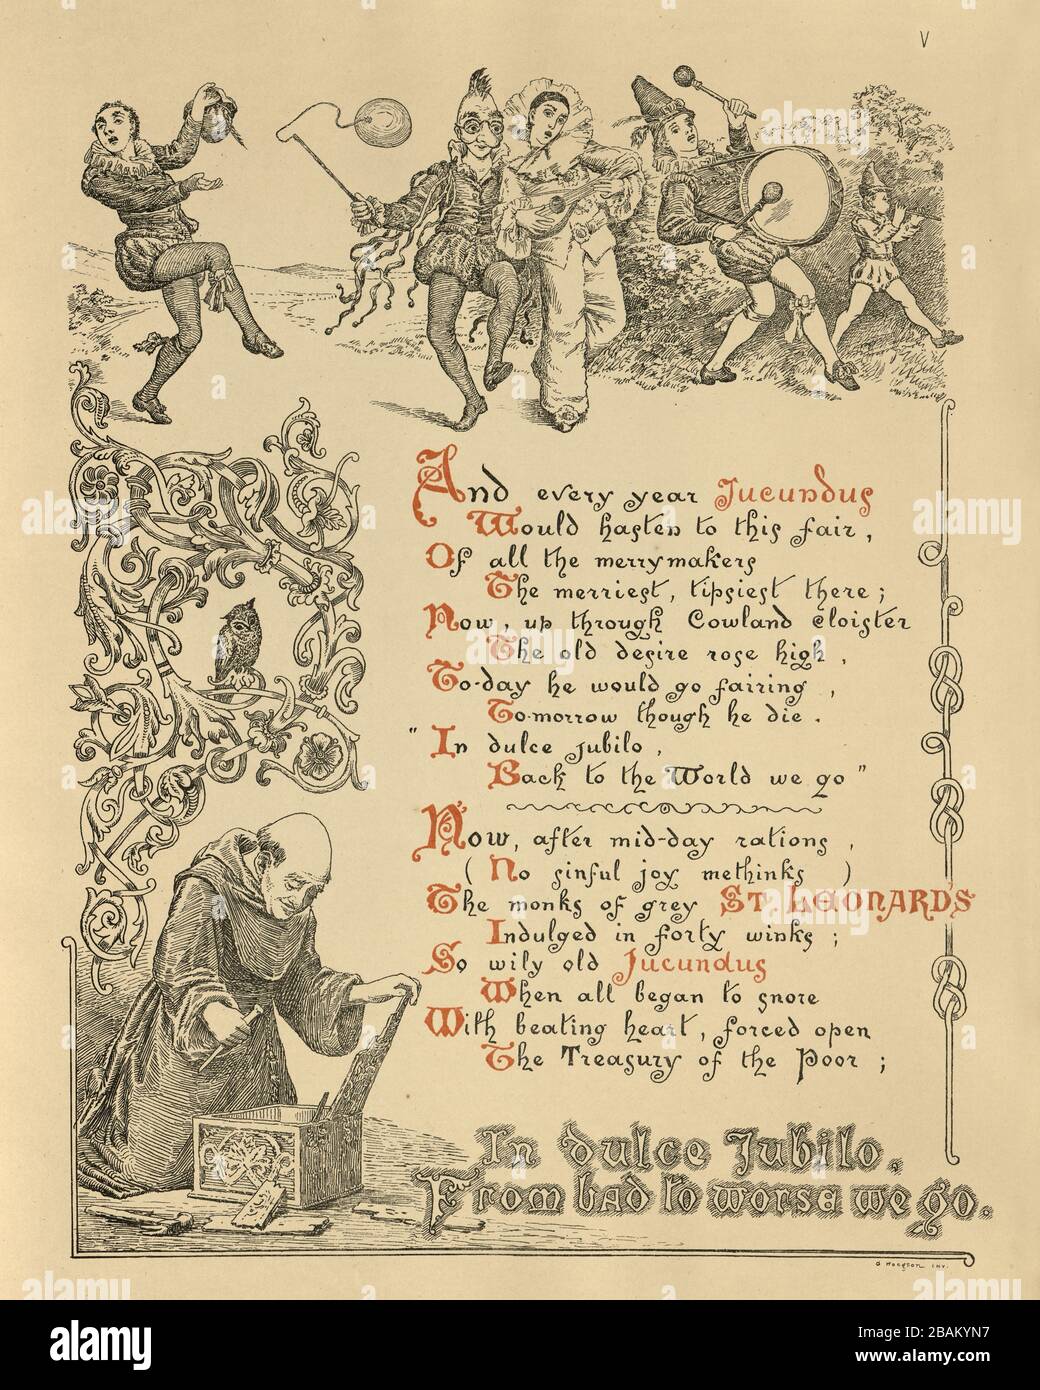 V
And every year Jucundus
Would hasten to this fair,
Of all the merrymakers
The merriest, tipsiest there;
Now, up through Cowland cloister
The old desire rose high,
To-day he would go fairing,
To-morrow though he die.
"In dulce jubilo,
Back to the World we go"
Now, after mid-day rations,
(No sinful joy methinks)
The monks of grey ST. LEONARD'S
Indulged in forty winks;
So wily old Jucundus
When all began to snore
With beating heart, forced open
The Treasury of the Poor;
In dulce Jubilo,
From bad to worse we go.
G Hodgson INV.
alamy
Image ID: 2BAKYN7
www.alamy.com